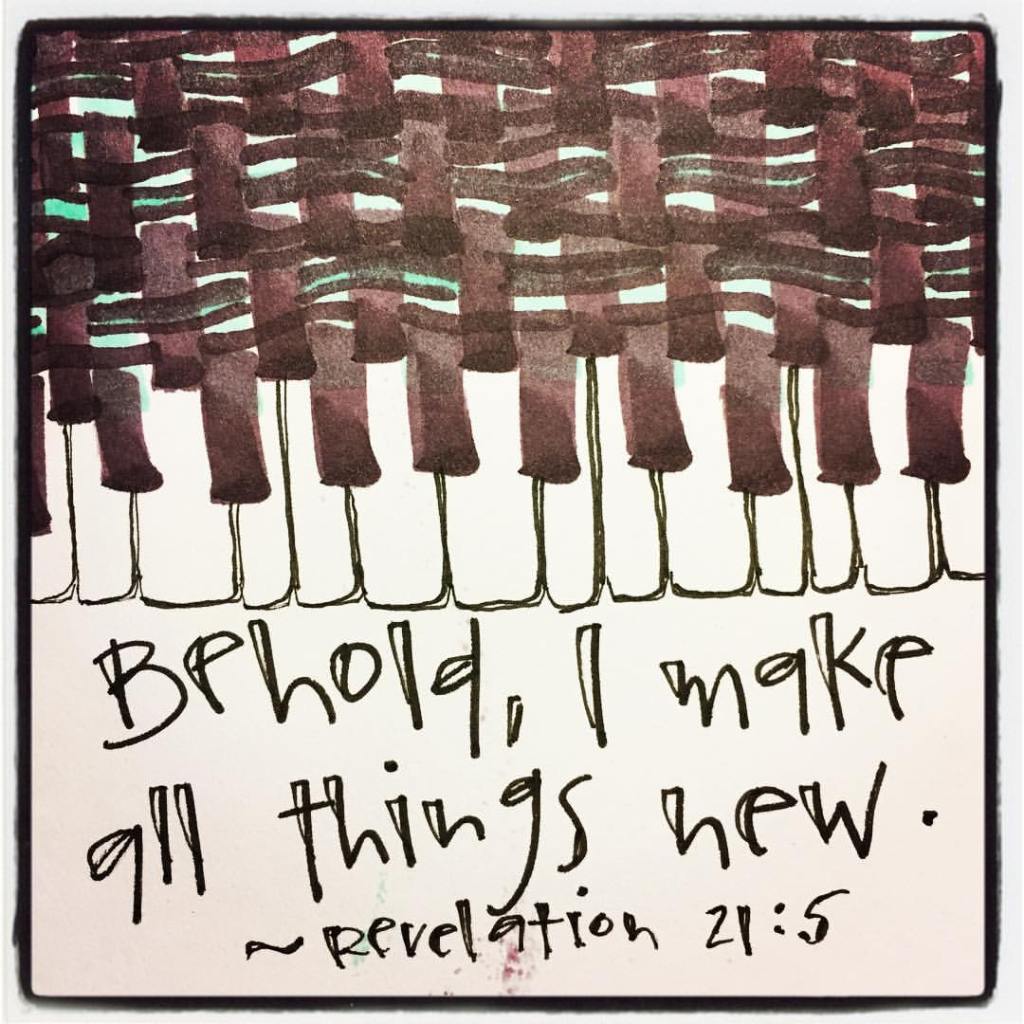 Behold, I make
all things new.
~Revelation 21:5